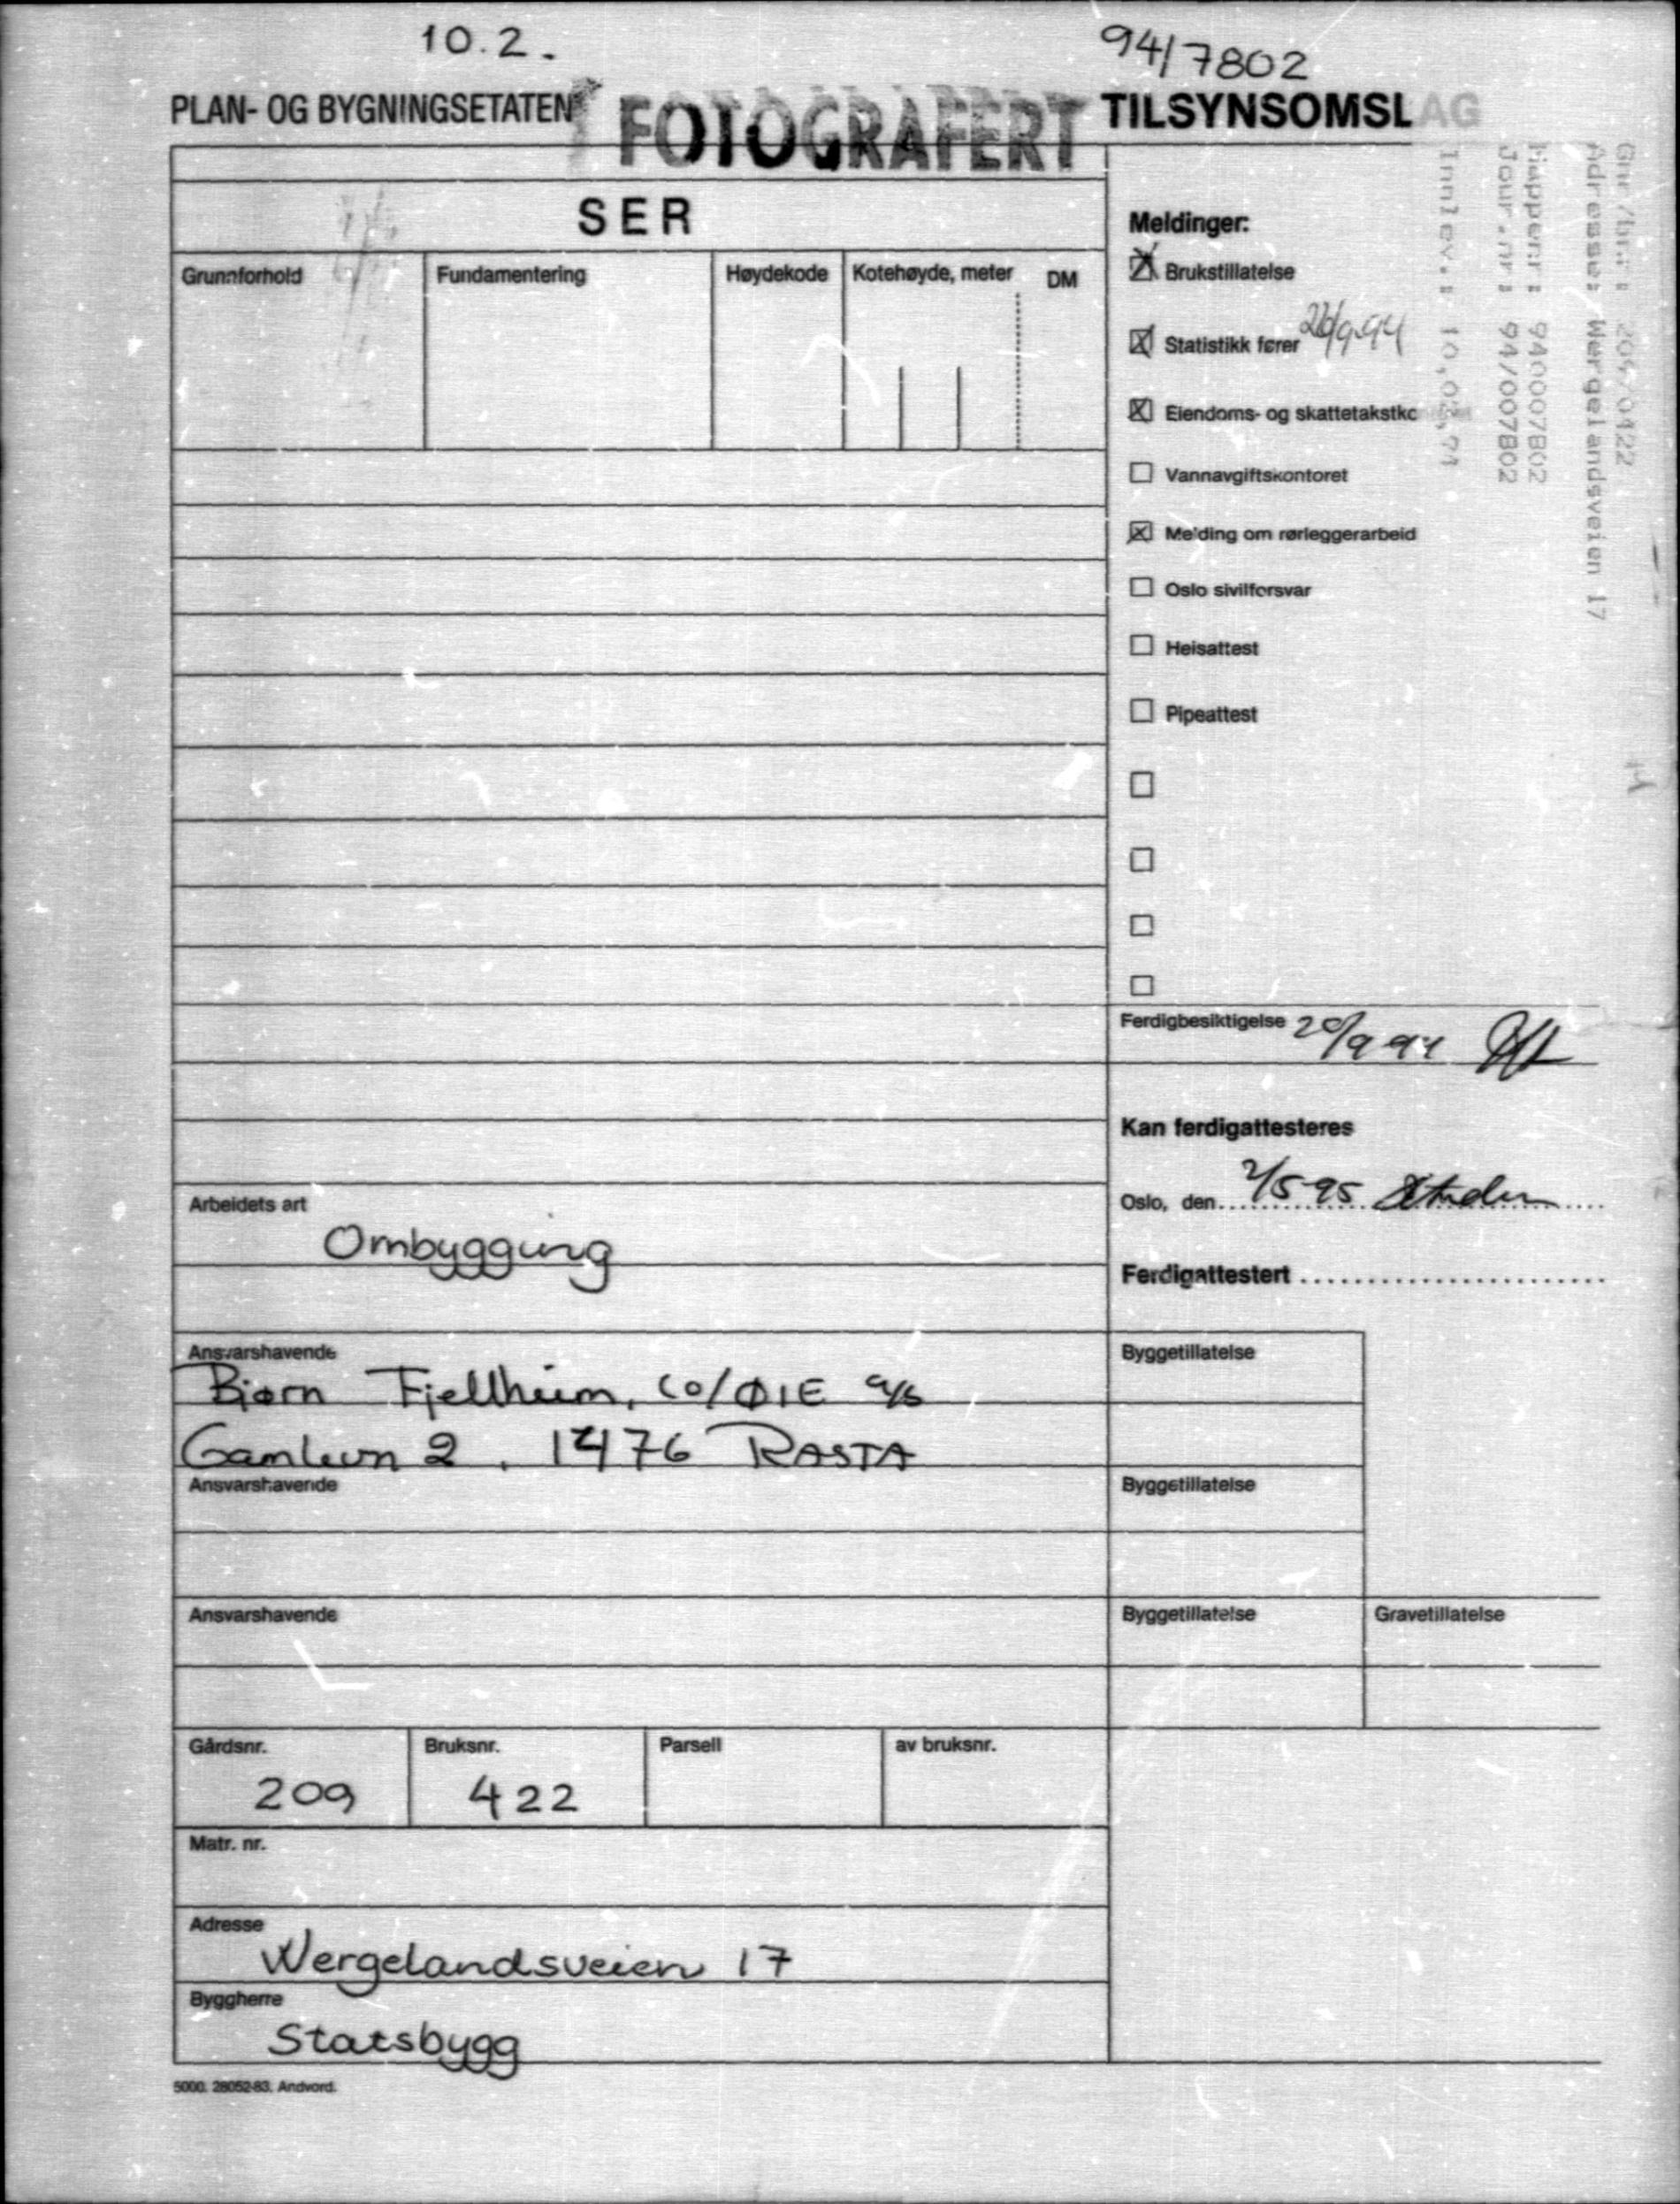 10.2.
94/7802
PLAN- OG BYGNINGSETATEN
FOTOGRAFERT
TILSYNSOMSLAG
SER
Grunnforhold
Fundamentering
Høydekode
Kotehøyde, meter
DM
Meldinger:
Brukstillatelse
Statistikk fører
Eiendoms- og skattetakstkc
Vannavgiftskontoret
Melding om rørleggerarbeid
Oslo sivilforsvar
Heisattest
Pipeattest
Gnr/br.:
Adresse: Wergelandsveien 17
Mappenr: 940007802
Jour.nr: 94/007802
Innlev.:
Ferdigbesiktigelse 20/9 94
Kan ferdigattesteres
Oslo, den 2/5-95
Ferdigattestert
Arbeidets art
Ombygging
Ansvarshavende
Bjørn Fjellheim, co/ØIE a/s
Gamlevn 2, 1476 RASTA
Byggetillatelse
Ansvarshavende
Byggetillatelse
Ansvarshavende
Byggetillatelse
Gravetillatelse
Gårdsnr.
209
Bruksnr.
422
Parsell
av bruksnr.
Matr. nr.
Adresse
Wergelandsveien 17
Byggherre
Statsbygg
5000. 28052-83. Andvord.